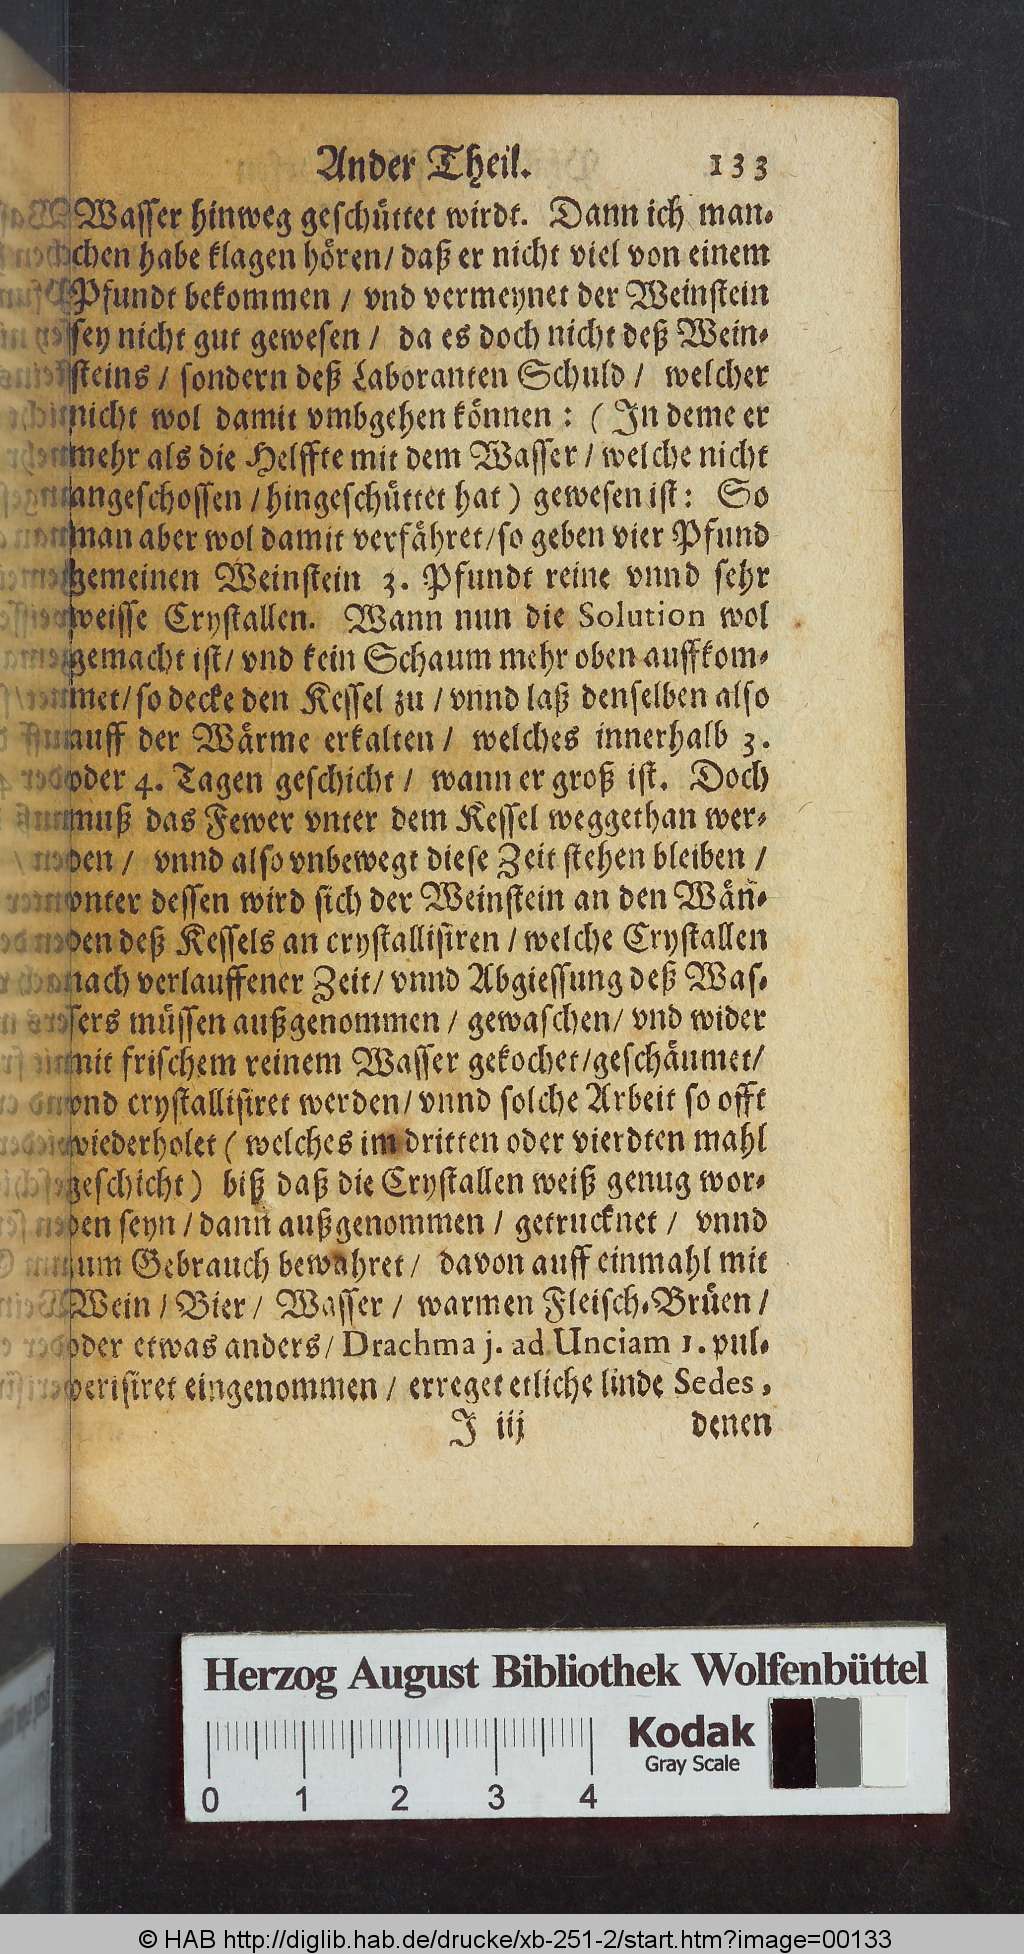 Ander Theil. 133
Wasser hinweg geschüttet wirdt. Dann ich man-
chen habe klagen hören/ daß er nicht viel von einem
Pfundt bekommen / vnd vermeynet der Weinstein
sey nicht gut gewesen / da es doch nicht deß Wein-
steins / sondern deß Laboranten Schuld / welcher
nicht wol damit vmbgehen können : ( In deme er
mehr als die Helffte mit dem Wasser / welche nicht
angeschossen / hingeschüttet hat ) gewesen ist: So
man aber wol damit verfähret/so geben vier Pfund
gemeinen Weinstein 3. Pfundt reine vnnd sehr
weisse Crystallen. Wann nun die Solution wol
gemacht ist/ vnd kein Schaum mehr oben auffkom-
met/ so decke den Kessel zu / vnnd laß denselben also
auff der Wärme erkalten / welches innerhalb 3.
oder 4. Tagen geschicht / wann er groß ist. Doch
muß das Fewer vnter dem Kessel weggethan wer-
den / vnnd also vnbewegt diese Zeit stehen bleiben /
vnter dessen wird sich der Weinstein an den Wän-
den deß Kessels an crystallisiren / welche Crystallen
nach verlauffener Zeit/ vnnd Abgiessung deß Was-
sers müssen außgenommen / gewaschen/ vnd wider
mit frischem reinem Wasser gekochet/geschäumet/
vnd crystallisiret werden/ vnnd solche Arbeit so offt
wiederholet ( welches im dritten oder vierdten mahl
geschicht ) biß daß die Crystallen weiß genug wor-
den seyn / dann außgenommen / getrucknet / vnnd
zum Gebrauch bewahret / davon auff einmahl mit
Wein / Bier / Wasser / warmen Fleisch-Brüen /
oder etwas anders/ Drachma j. ad Unciam 1. pul-
verisiret eingenommen / erreget etliche linde Sedes,
J iij denen
Herzog August Bibliothek Wolfenbüttel
Kodak
Gray Scale
0 1 2 3 4
© HAB http://diglib.hab.de/drucke/xb-251-2/start.htm?image=00133